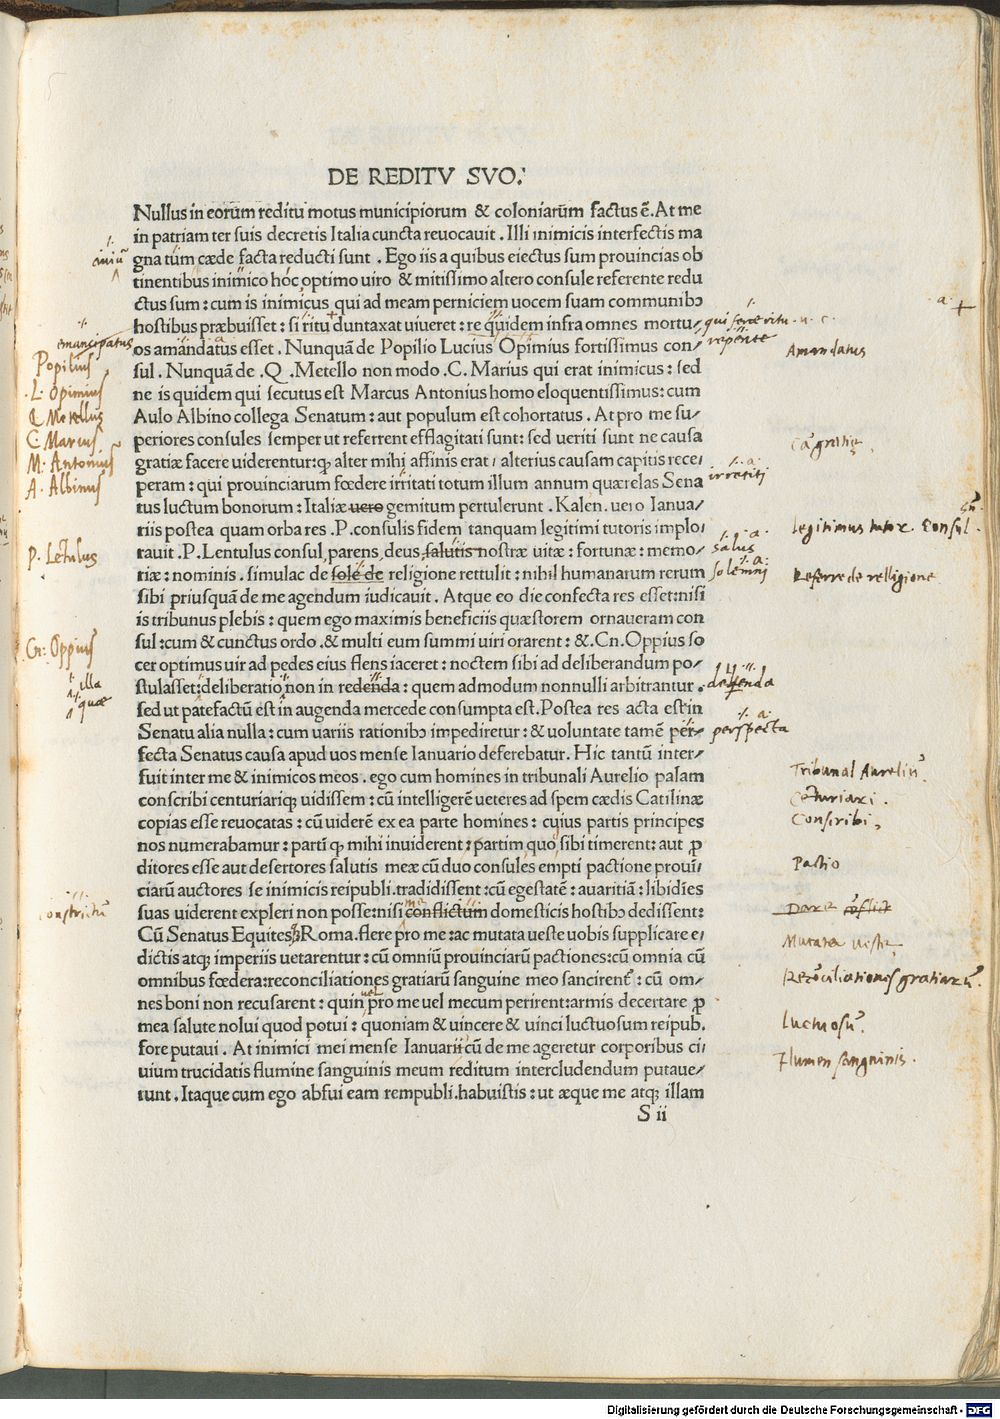 DE REDITV SVO.
Nullus in eorum reditu motus municipiorum & coloniarum factus ē. At me
in patriam ter suis decretis Italia cuncta reuocauit . Illi inimicis interfectis ma
gna tum cæde facta reducti sunt . Ego iis a quibus eiectus sum prouincias ob
tinentibus inimico hoc optimo uiro & mitissimo altero consule referente redu
ctus sum : cum is inimicus qui ad meam perniciem uocem suam communibꝫ
hostibus præbuisset : si ritu duntaxat uiueret : re quidem infra omnes mortu/
os amandatus esset . Nunquā de Popilio Lucius Opimius fortissimus con/
sul . Nunquā de .Q .Metello non modo .C. Marius qui erat inimicus : sed
ne is quidem qui secutus est Marcus Antonius homo eloquentissimus : cum
Aulo Albino collega Senatum : aut populum est cohortatus . At pro me su/
periores consules semper ut referrent efflagitati sunt : sed ueriti sunt ne causa
gratiæ facere uiderentur : qꝫ alter mihi affinis erat / alterius causam capitis rece/
peram : qui prouinciarum fœdere irritati totum illum annum quærelas Sena
tus luctum bonorum : Italiæ uero gemitum pertulerunt . Kalen. uero Ianua/
riis postea quam orba res .P. consulis fidem tanquam legitimi tutoris implo/
rauit .P. Lentulus consul, parens, deus, salutis nostræ uitæ : fortunæ : memo/
riæ : nominis . simulac de sole de religione rettulit : nihil humanarum rerum
sibi priusquā de me agendum iudicauit . Atque eo die confecta res esset : nisi
is tribunus plebis : quem ego maximis beneficiis quæstorem ornaueram con
sul : cum & cunctus ordo .& multi eum summi uiri orarent : &.Cn.Oppius so
cer optimus uir ad pedes eius flens iaceret : noctem sibi ad deliberandum po/
stulasset : deliberatio non in redenda : quem admodum nonnulli arbitrantur .
sed ut patefactū est in augenda mercede consumpta est. Postea res acta est in
Senatu alia nulla : cum uariis rationibꝫ impediretur : & uoluntate tamē per/
fecta Senatus causa apud uos mense Ianuario deferebatur . Hic tantū inter/
fuit inter me & inimicos meos . ego cum homines in tribunali Aurelio palam
conscribi centuriariqꝫ uidissem : cū intelligerē ueteres ad spem cædis Catilinæ
copias esse reuocatas : cū uiderē ex ea parte homines : cuius partis principes
nos numerabamur : partī qꝫ mihi inuiderent : partim quo sibi timerent : aut ꝓ
ditores esse aut desertores salutis meæ cū duo consules empti pactione prouī/
ciarū auctores se inimicis reipubli.tradidissent : cū egestatē : auaritiā : libidīes
suas uiderent expleri non posse : nisi conflictum domesticis hostibꝫ dedissent :
Cū Senatus Equitesqꝫ Roma. flere pro me : ac mutata ueste uobis supplicare e/
dictis atqꝫ imperiis uetarentur : cū omniū prouinciarū pactiones : cū omnia cū
omnibus fœdera : reconciliationes gratiarū sanguine meo sancirent : cū om/
nes boni non recusarent : quin pro me uel mecum perirent : armis decertare ꝓ
mea salute nolui quod potui : quoniam & uincere & uinci luctuosum reipub.
fore putaui . At inimici mei mense Ianuarii cū de me ageretur corporibus ci/
uium trucidatis flumine sanguinis meum reditum intercludendum putaue/
runt . Itaque cum ego abfui eam rempubli.habuistis : ut æque me atqꝫ illam
S ii
ciuiū
emancipatus
Popilius
.L. Opimius
Q. Metellus
C. Marius
M. Antonius
A. Albinus
P. Lētulus
Cn. Oppius
illa
quæ
constrictū
me
uel
qui feræ ritu . u. c.
repente
irretiti
salus
solemni
defenda
perspecta
a.
Amandatus
Cā gratiæ
Legitimus tutor. Consul
Referre de relligione
Tribunal Aureliū.
Cēturiari .
Conscribi,
Pactio
Dare cōflict
Mutata ueste
Recōciliationis gratiarū.
Luctuosū.
Flumen sanguinis .
Digitalisierung gefördert durch die Deutsche Forschungsgemeinschaft - DFG